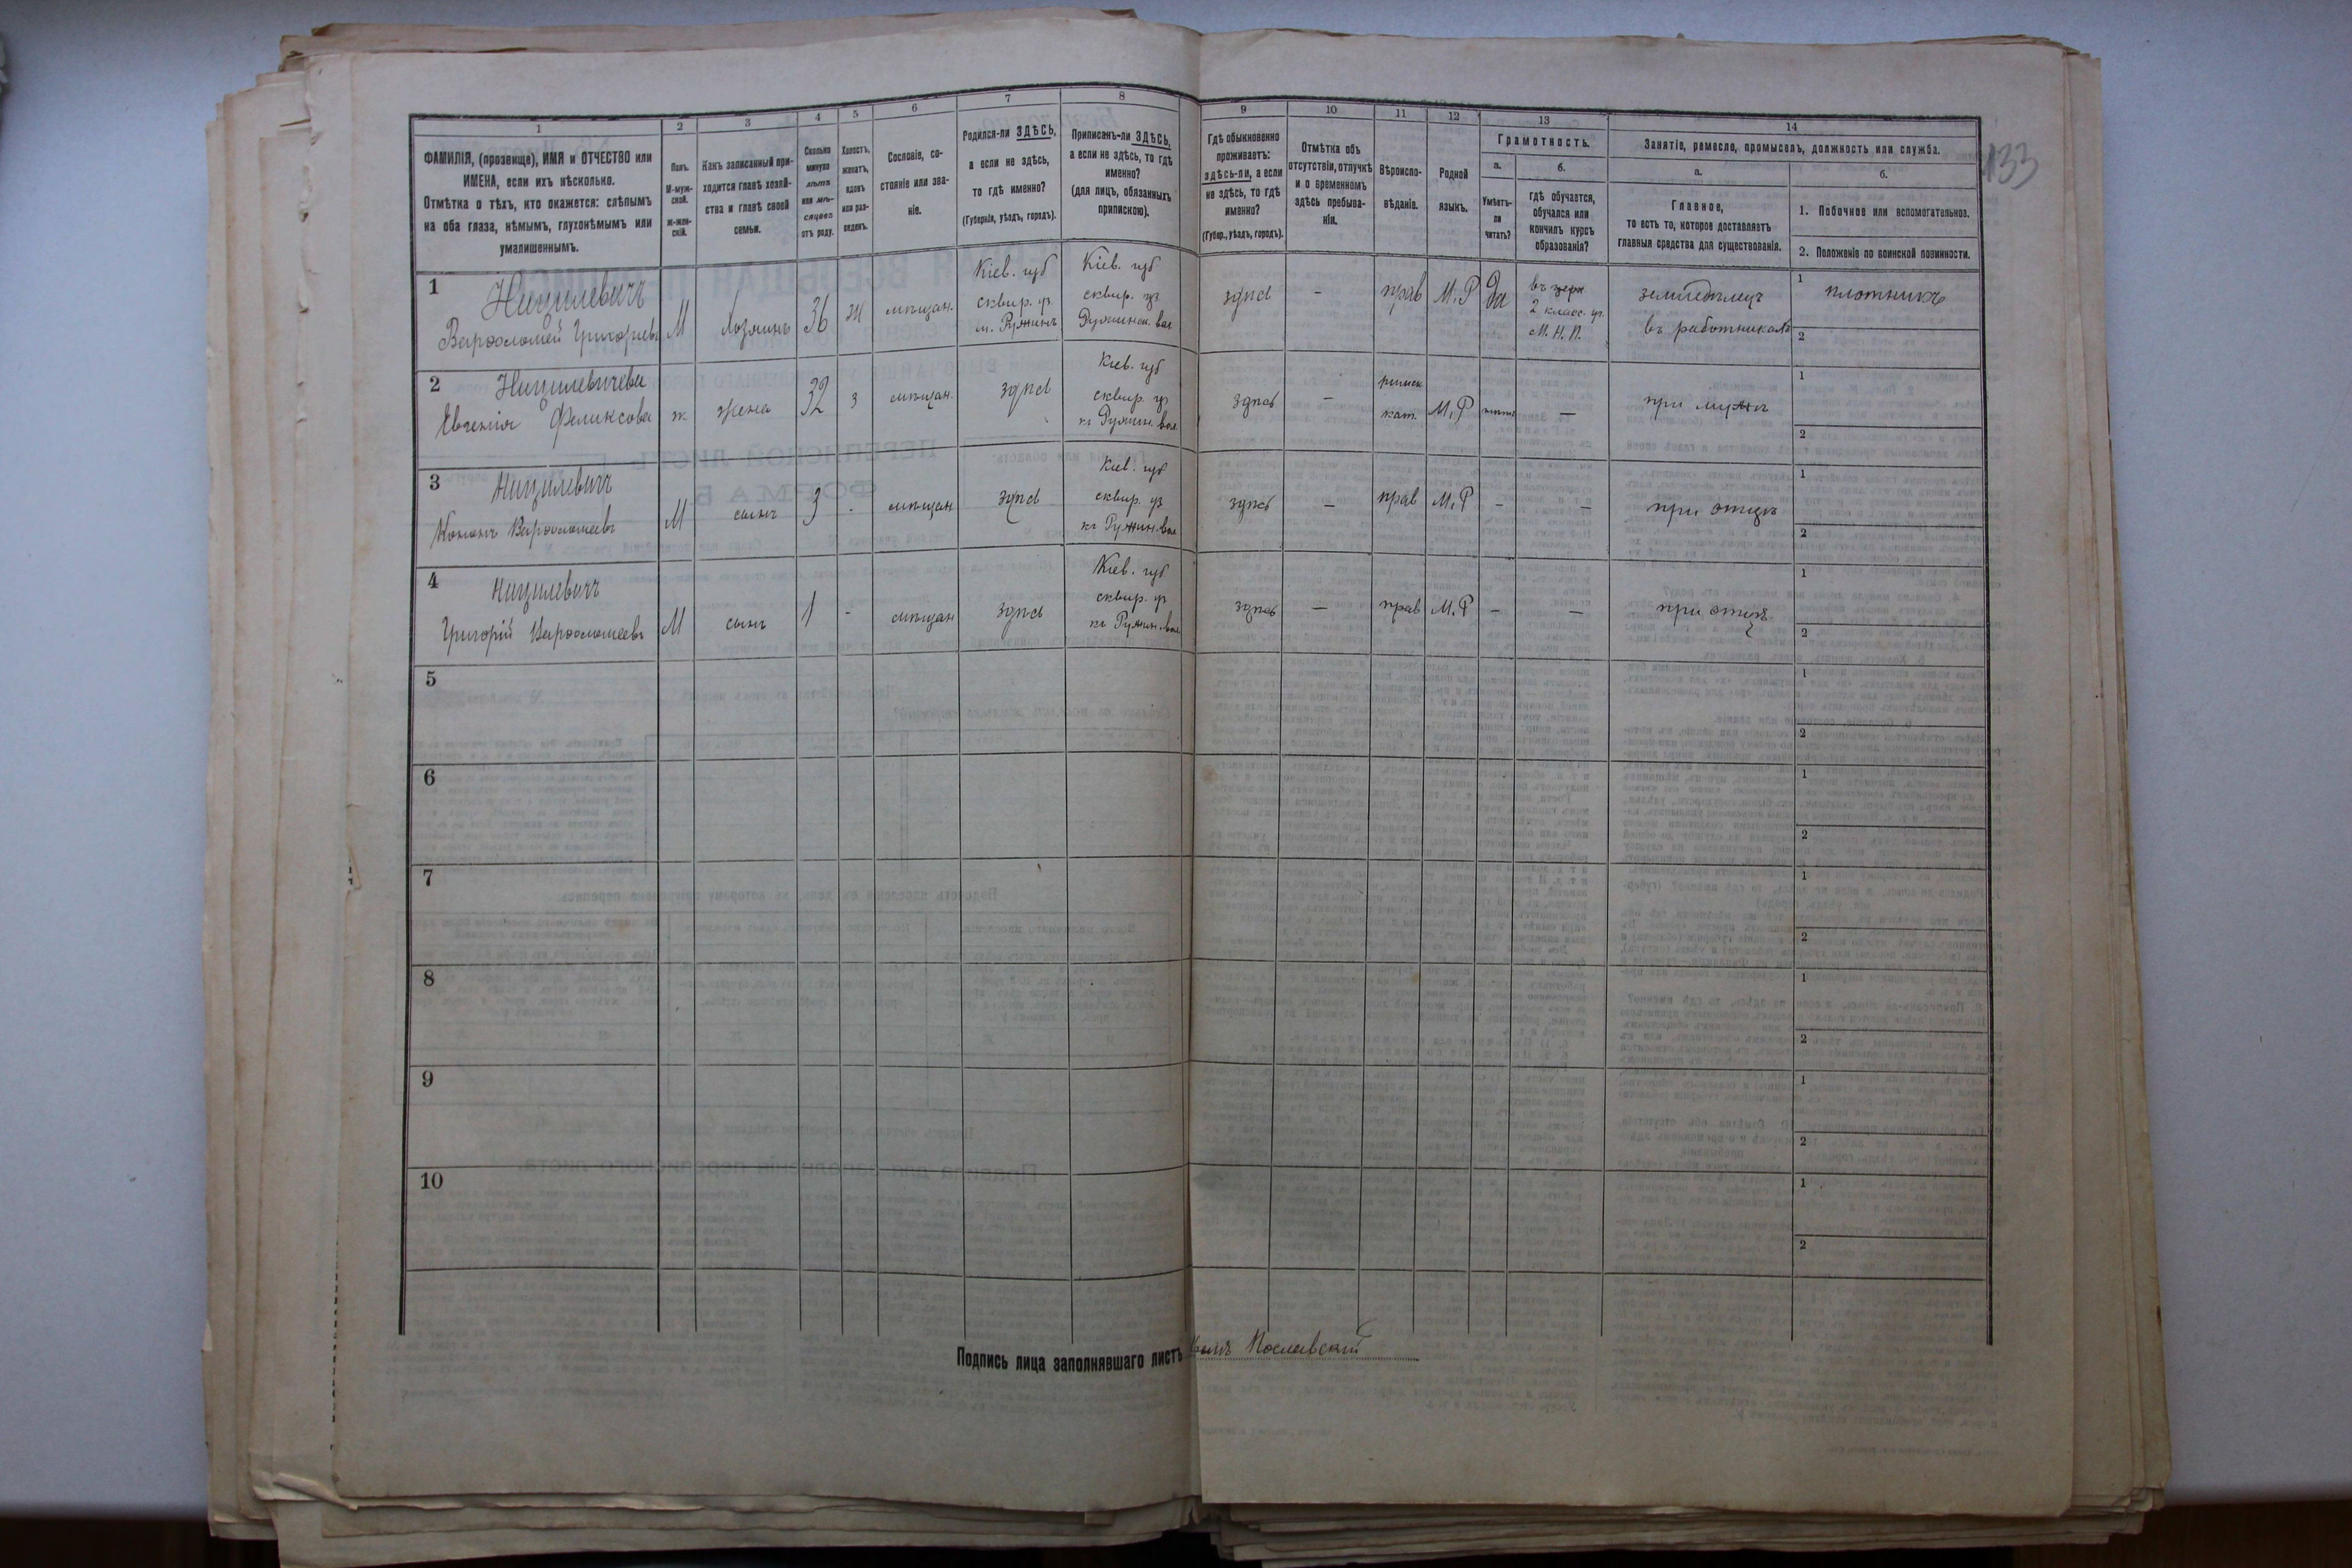 1
2
3
4
5
6
7
8
9
10
11
12
13
14
133
ФАМИЛІЯ, (прозвище), ИМЯ и ОТЧЕСТВО или
ИМЕНА, если ихъ нѣсколько.
Отмѣтка о тѣхъ, кто окажется: слѣпымъ
на оба глаза, нѣмымъ, глухонѣмымъ или
умалишеннымъ.
Полъ.
М-муж-
ской.
Ж-жен-
скій.
Какъ записанный при-
ходится главѣ хозяй-
ства и главѣ своей
семьи.
Сколько
минуло
лѣтъ
или мѣ-
сяцевъ
отъ роду.
Холостъ,
женатъ,
вдовъ
или раз-
веденъ.
Сословіе, со-
стояніе или зва-
ніе.
Родился-ли ЗДѢСЬ,
а если не здѣсь,
то гдѣ именно?
(Губернія, уѣздъ, городъ).
Приписанъ-ли ЗДѢСЬ,
а если не здѣсь, то гдѣ
именно?
(для лицъ, обязанныхъ
припискою).
Гдѣ обыкновенно
проживаетъ:
здѣсь-ли, а если
не здѣсь, то гдѣ
именно?
(Губер., уѣздъ, городъ).
Отмѣтка объ
отсутствіи, отлучкѣ
и о временномъ
здѣсь пребыва-
ніи.
Вѣроиспо-
вѣданіе.
Родной
языкъ.
Грамотность.
а.
Умѣетъ-
ли
читать?
б.
гдѣ обучается,
обучался или
кончилъ курсъ
образованія?
Занятіе, ремесло, промыселъ, должность или служба.
а.
Главное,
то есть то, которое доставляетъ
главныя средства для существованія.
б.
1. Побочное или вспомогательное.
2. Положеніе по воинской повинности.
1
Варѳоломей Григорьевъ
М
Хозяинъ
36
ж
мѣщан.
Кіев. губ
сквир. уѣз
м. Ружинъ
Кіев. губ
сквир. уѣз
Ружинск. вол
здѣсь
-
прав
М.Р
да
въ
2 класс. уч.
М. Н. П.
земледѣлец
въ работникахъ
1 плотникъ
2
2
Евгенія Феликсова
ж
жена
32
з
мѣщан.
здѣсь
Кіев. губ
сквир. уѣз
Ружин. вол
здѣсь
-
римск
кат.
М.Р
нѣтъ
-
при мужѣ
1
2
3
Кононъ Варѳоломеевъ
М
сынъ
3
-
мѣщан
здѣсь
Кіев. губ
сквир. уѣз
Ружин. вол
здѣсь
-
прав
М.Р
-
-
при отцѣ
1
2
4
Григорій Варѳоломеевъ
М
сынъ
1
-
мѣщан
здѣсь
Кіев. губ
сквир. уѣз
Ружин. вол
здѣсь
-
прав
М.Р
-
-
при отцѣ
1
2
5
1
2
6
1
2
7
1
2
8
1
2
9
1
2
10
1
2
Подпись лица заполнявшаго листъ